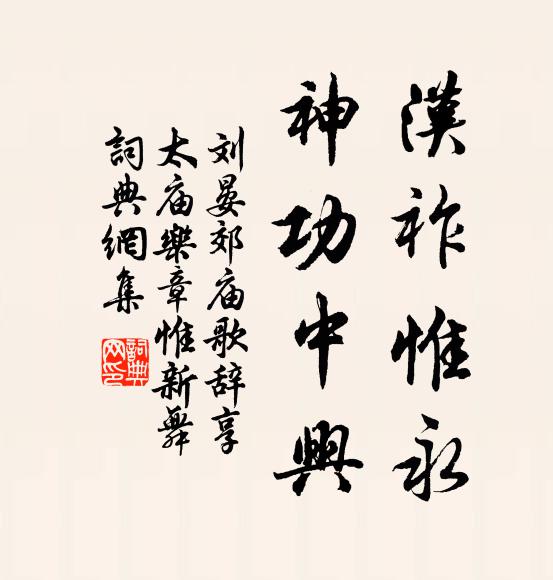 漢祚惟永
神功中興
刘晏郊庙歌辞享
太庙樂章惟新舞
詞典網集
詞典网印